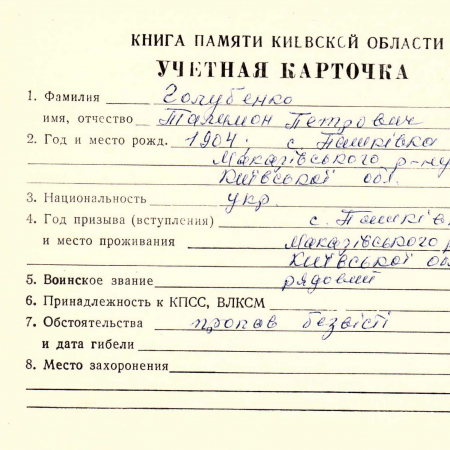 КНИГА ПАМЯТИ КИЕВСКОЙ ОБЛАСТИ
УЧЕТНАЯ КАРТОЧКА
1. Фамилия Голубенко
имя, отчество Пилимон Петрович
2. Год и место рожд. 1904. с. Пашківка
Макарівського р-ну
Київської обл.
3. Национальность укр.
4. Год призыва (вступления) с. Пашків
и место проживания Макарівського р
Київської об
5. Воинское звание рядовий
6. Принадлежность к КПСС, ВЛКСМ
7. Обстоятельства пропав безвісті
и дата гибели
8. Место захоронения